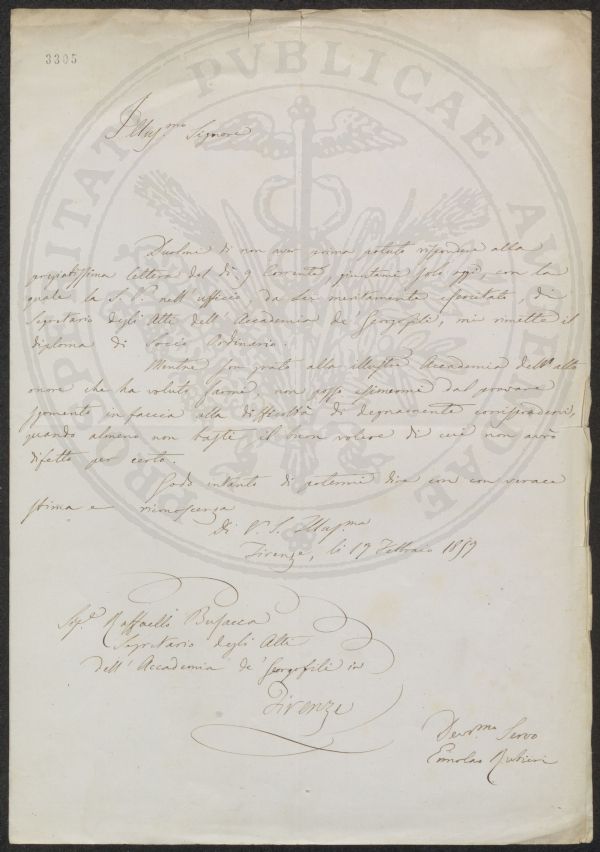 3305
PROSPERITATI PVBLICAE AVGENDAE
Illus.mo Signore
Duolmi di non aver prima potuto rispondere alla
pregiatissima lettera del dì 9 Corrente, giuntami solo oggi con la
quale la S. V. nell'ufficio, da lei meritamente esercitato, di
Segretario degli Atti dell'Accademia de' Georgofili, mi rimette il
diploma di Socio Ordinario.
Mentre son grato alla illustre Accademia dell'alto
onore che ha voluto farmi, non posso esimermi dal provare
sgomento in faccia alla difficoltà di degnamente corrispondervi,
quando almeno non basti il buon volere di cui non avrò
difetto per certo.
Godo intanto di potermi dire con con verace
stima e riconoscenza
Di V. S. Illus.ma
Firenze, li 17 Febbraio 1859
Sig.r Raffaello Busacca
Segretario degli Atti
dell'Accademia de' Georgofili in
Firenze
Devot.mo Servo
Ermolao Rubieri